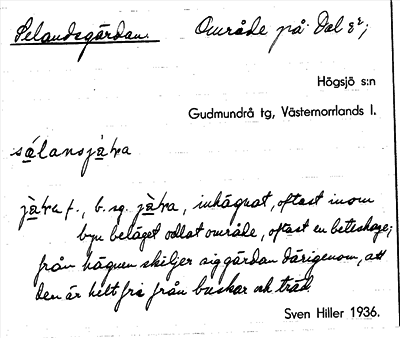 Selandsgärdan. Område på Dal 8²;
Högsjö s:n
Gudmundrå tg, Västernorrlands l.
sálansjàɽa
jàɽa f., b. sg. jàɽa, inhägnat, oftast inom
byn beläget odlat område, oftast en beteshage;
från hägnen skiljer sig gärdan därigenom, att
den är helt fri från buskar och träd.
Sven Hiller 1936.